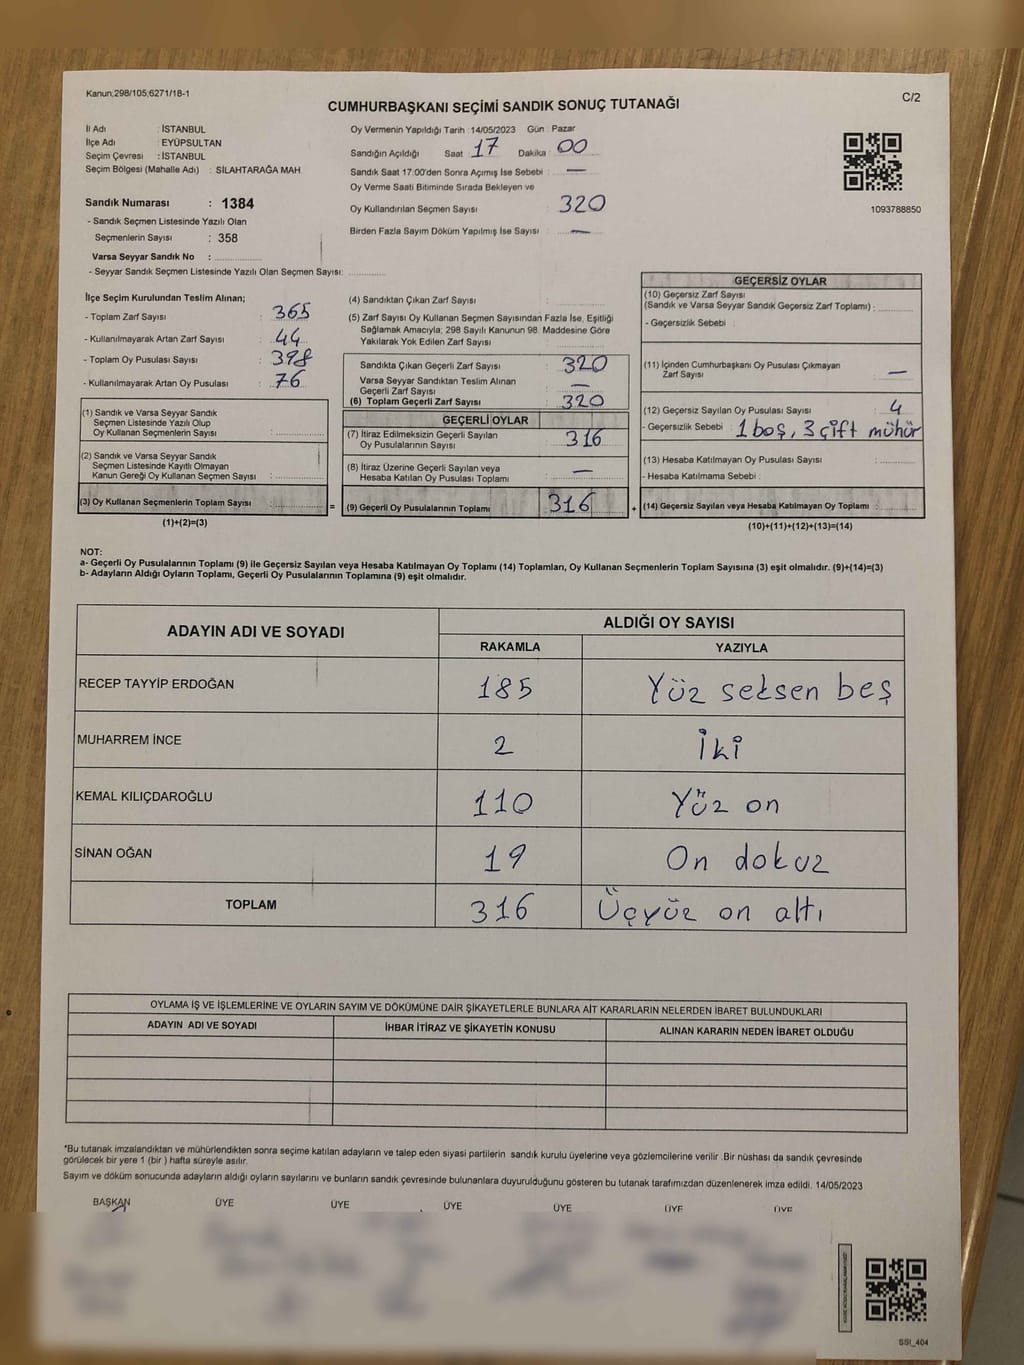 Kanun;298/105;6271/18-1
C/2
CUMHURBAŞKANI SEÇİMİ SANDIK SONUÇ TUTANAĞI
İl Adı : İSTANBUL
İlçe Adı : EYÜPSULTAN
Seçim Çevresi : İSTANBUL
Seçim Bölgesi (Mahalle Adı) : SİLAHTARAĞA MAH.
Sandık Numarası : 1384
- Sandık Seçmen Listesinde Yazılı Olan
Seçmenlerin Sayısı : 358
Varsa Seyyar Sandık No :
- Seyyar Sandık Seçmen Listesinde Yazılı Olan Seçmen Sayısı:
Oy Vermenin Yapıldığı Tarih : 14/05/2023 Gün : Pazar
Sandığın Açıldığı Saat : 17 Dakika : 00
Sandık Saat 17:00'den Sonra Açımış İse Sebebi : —
Oy Verme Saati Bitiminde Sırada Bekleyen ve
Oy Kullandırılan Seçmen Sayısı : 320
Birden Fazla Sayım Döküm Yapılmış İse Sayısı : —
1093788850
İlçe Seçim Kurulundan Teslim Alınan;
- Toplam Zarf Sayısı : 365
- Kullanılmayarak Artan Zarf Sayısı : 44
- Toplam Oy Pusulası Sayısı : 398
- Kullanılmayarak Artan Oy Pusulası : 76
(1) Sandık ve Varsa Seyyar Sandık
Seçmen Listesinde Yazılı Olup
Oy Kullanan Seçmenlerin Sayısı :
(2) Sandık ve Varsa Seyyar Sandık
Seçmen Listesinde Kayıtlı Olmayan
Kanun Gereği Oy Kullanan Seçmen Sayısı :
(3) Oy Kullanan Seçmenlerin Toplam Sayısı :
(1)+(2)=(3)
(4) Sandıktan Çıkan Zarf Sayısı :
(5) Zarf Sayısı Oy Kullanan Seçmen Sayısından Fazla İse, Eşitliği
Sağlamak Amacıyla; 298 Sayılı Kanunun 98. Maddesine Göre
Yakılarak Yok Edilen Zarf Sayısı :
Sandıkta Çıkan Geçerli Zarf Sayısı : 320
Varsa Seyyar Sandıktan Teslim Alınan
Geçerli Zarf Sayısı : —
(6) Toplam Geçerli Zarf Sayısı : 320
GEÇERLİ OYLAR
(7) İtiraz Edilmeksizin Geçerli Sayılan
Oy Pusulasının Sayısı : 316
(8) İtiraz Üzerine Geçerli Sayılan veya
Hesaba Katılan Oy Pusulası Toplamı : —
= (9) Geçerli Oy Pusulalarının Toplamı 316
GEÇERSİZ OYLAR
(10) Geçersiz Zarf Sayısı
(Sandık ve Varsa Seyyar Sandık Geçersiz Zarf Toplamı) :
- Geçersizlik Sebebi :
(11) İçinden Cumhurbaşkanı Oy Pusulası Çıkmayan
Zarf Sayısı : —
(12) Geçersiz Sayılan Oy Pusulası Sayısı : 4
- Geçersizlik Sebebi : 1 boş, 3 çift mühür
(13) Hesaba Katılmayan Oy Pusulası Sayısı :
- Hesaba Katılmama Sebebi :
+ (14) Geçersiz Sayılan veya Hesaba Katılmayan Oy Toplamı :
(10)+(11)+(12)+(13)=(14)
NOT:
a- Geçerli Oy Pusulalarının Toplamı (9) ile Geçersiz Sayılan veya Hesaba Katılmayan Oy Toplamı (14) Toplamları, Oy Kullanan Seçmenlerin Toplam Sayısına (3) eşit olmalıdır. (9)+(14)=(3)
b- Adayların Aldığı Oyların Toplamı, Geçerli Oy Pusulalarının Toplamına (9) eşit olmalıdır.
ADAYIN ADI VE SOYADI ALDIĞI OY SAYISI
RAKAMLA YAZIYLA
RECEP TAYYİP ERDOĞAN 185 Yüz seksen beş
MUHARREM İNCE 2 İki
KEMAL KILIÇDAROĞLU 110 Yüz on
SİNAN OĞAN 19 On dokuz
TOPLAM 316 Üçyüz on altı
OYLAMA İŞ VE İŞLEMLERİNE VE OYLARIN SAYIM VE DÖKÜMÜNE DAİR ŞİKAYETLERLE BUNLARA AİT KARARLARIN NELERDEN İBARET BULUNDUKLARI
ADAYIN ADI VE SOYADI İHBAR İTİRAZ VE ŞİKAYETİN KONUSU ALINAN KARARIN NEDEN İBARET OLDUĞU
*Bu tutanak imzalandıktan ve mühürlendikten sonra seçime katılan adayların ve talep eden siyasi partilerin sandık kurulu üyelerine veya gözlemcilerine verilir .Bir nüshası da sandık çevresinde
görülecek bir yere 1 (bir ) hafta süreyle asılır.
Sayım ve döküm sonucunda adayların aldığı oyların sayılarını ve bunların sandık çevresinde bulunanlara duyurulduğunu gösteren bu tutanak tarafımızdan düzenlenerek imza edildi. 14/05/2023
BAŞKAN ÜYE ÜYE ÜYE ÜYE ÜYE ÜYE
SSI_404